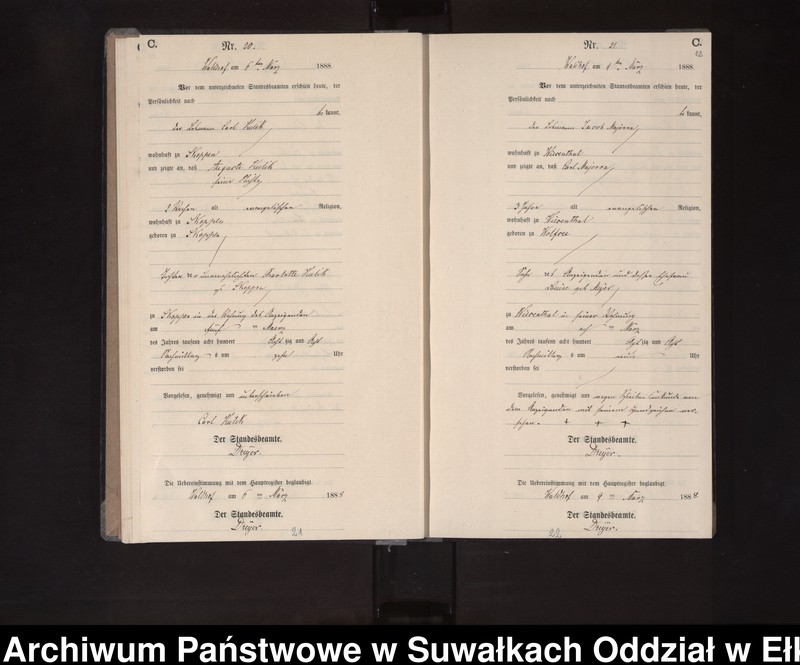 C.
Nr. 20.
Waldhof am 6ten März 1888.
Vor dem unterzeichneten Standesbeamten erschien heute, der
Persönlichkeit nach
be kannt,
der Carl Hulek
wohnhaft zu Skoppen
und zeigte an, daß Auguste Hulek
seine
2 Wochen alt evangelischen Religion,
wohnhaft zu Skoppen
geboren zu Skoppen
Tochter der unverehelichten Charlotte Hulek
zu Skoppen
zu Skoppen in der Wohnung des Anzeigenden
am fünf ten Maerz
des Jahres tausend acht hundert acht zig und acht
Nachmittag s um zehn Uhr
verstorben sei
Vorgelesen, genehmigt und unterschrieben
Carl Hulek
Der Standesbeamte.
Dreyer.
Die Uebereinstimmung mit dem Hauptregister beglaubigt.
Waldhof am 6 ten März 1888
Der Standesbeamte.
Dreyer.
21
C.
Nr. 21.
12
Waldhof am 9ten März 1888.
Vor dem unterzeichneten Standesbeamten erschien heute, der
Persönlichkeit nach
be kannt,
der Jacob Majorra
wohnhaft zu Wiersenthal
und zeigte an, daß Carl Majorra
3 Jahre alt evangelischen Religion,
wohnhaft zu Wiersenthal
geboren zu Wolfsee
Sohn des Anzeigenden und dessen Ehefrau
Louise geb Major
zu Wiersenthal in seiner Wohnung
am ach ten März
des Jahres tausend acht hundert acht zig und acht
Nachmittag s um neun Uhr
verstorben sei
Vorgelesen, genehmigt und wegen Schreibensunkunde von
dem Anzeigenden mit seinem Handzeichen ver-
sehen. + + +
Der Standesbeamte.
Dreyer.
Die Uebereinstimmung mit dem Hauptregister beglaubigt.
Waldhof am 9 ten März 1888.
Der Standesbeamte.
Dreyer.
22
Archiwum Państwowe w Suwałkach Oddział w Ełk